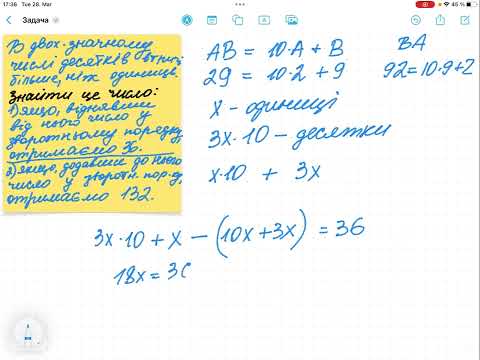 17:36 Tue 26. Mar
45 %
Задача
В двох-значному
числі десятків втричі
більше, ніж одиниць.
Знайти це число:
1) якщо, віднявши
від нього число у
зворотньому порядку,
отримаємо 36.
2) якщо, додавши до нього
число у зворотн. пор-ку,
отримаємо 132.
AB = 10·A + B
BA
29 = 10·2 + 9
92=10·9+2
x - одиниці
3x·10 - десятки
x·10 + 3x
3x·10 + x - (10x+3x) = 36
18x = 3